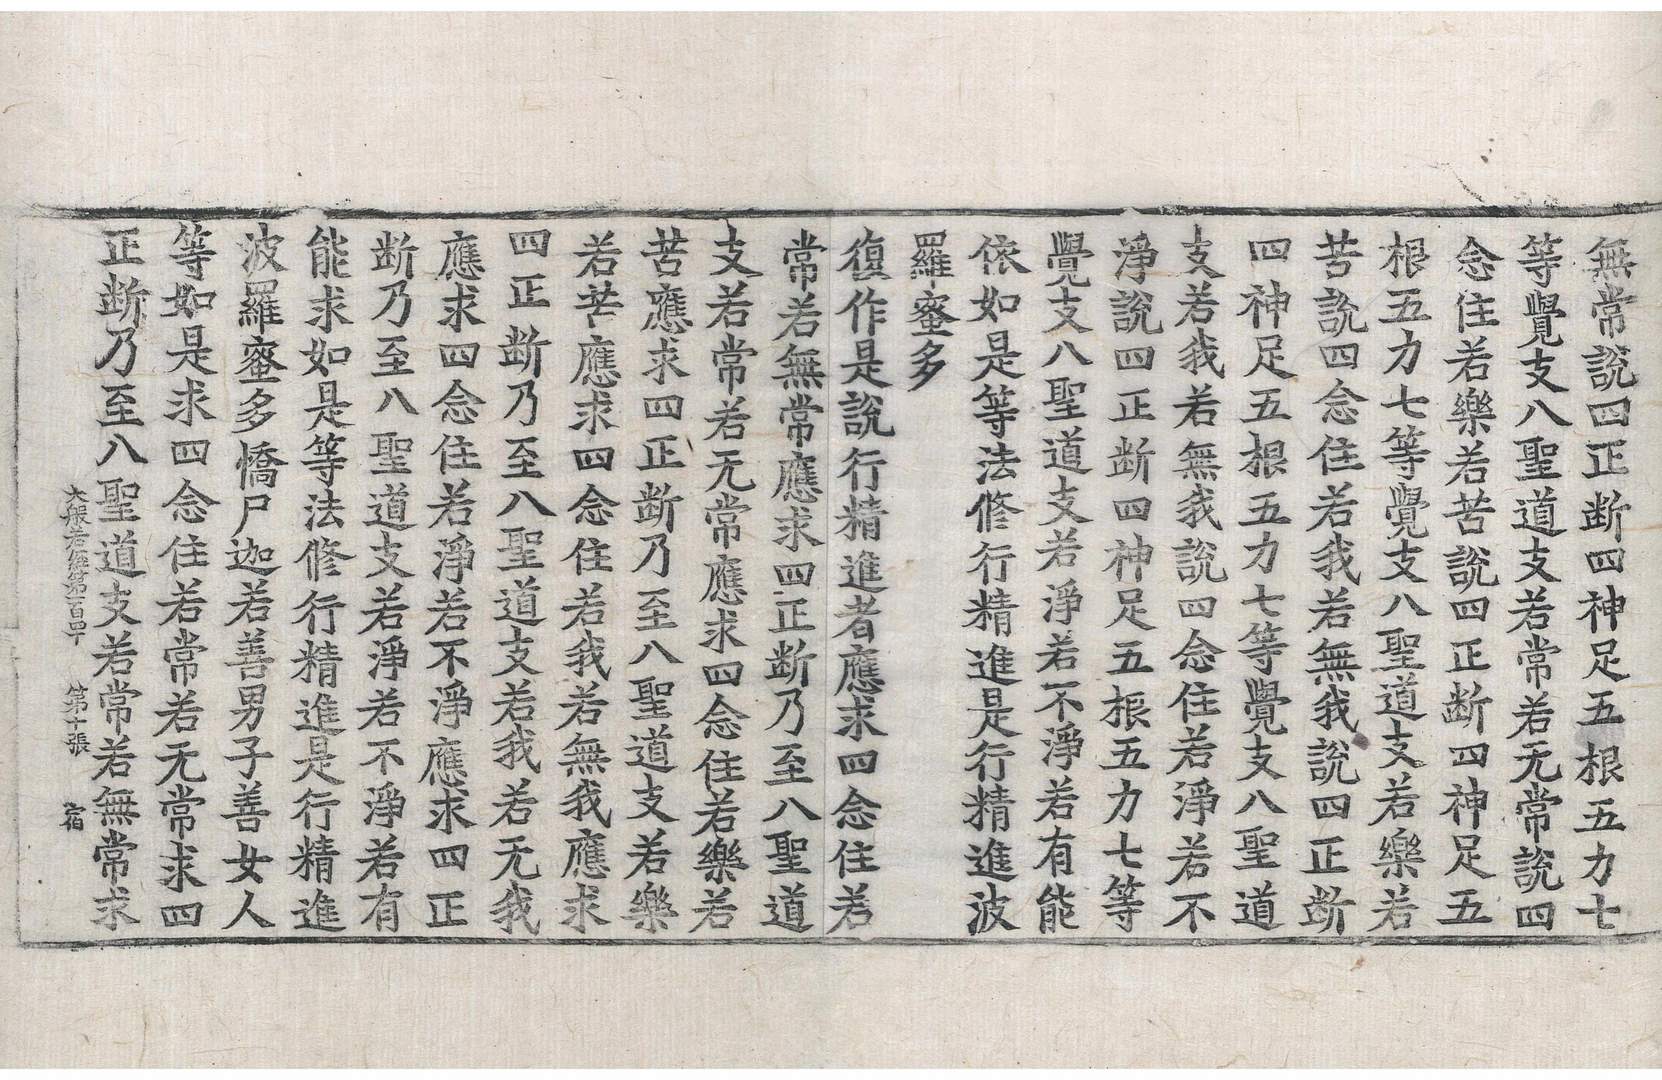 無常說四正断四神足五根五力七
等覺支八聖道支若常若无常說四
念住若樂若苦說四正断四神足五
根五力七等覺支八聖道支若樂若
苦說四念住若我若無我說四正断
四神足五根五力七等覺支八聖道
支若我若無我說四念住若淨若不
淨說四正断四神足五根五力七等
覺支八聖道支若淨若不淨若有能
依如是等法修行精進是行精進波
羅蜜多
復作是說行精進者應求四念住若
常若無常應求四正断乃至八聖道
支若常若无常應求四念住若樂若
苦應求四正断乃至八聖道支若樂
若苦應求四念住若我若無我應求
四正断乃至八聖道支若我若无我
應求四念住若淨若不淨應求四正
断乃至八聖道支若淨若不淨若有
能求如是等法修行精進是行精進
波羅蜜多憍尸迦若善男子善女人
等如是求四念住若常若无常求四
正断乃至八聖道支若常若無常求
大般若經第一百四十 第十張 宿